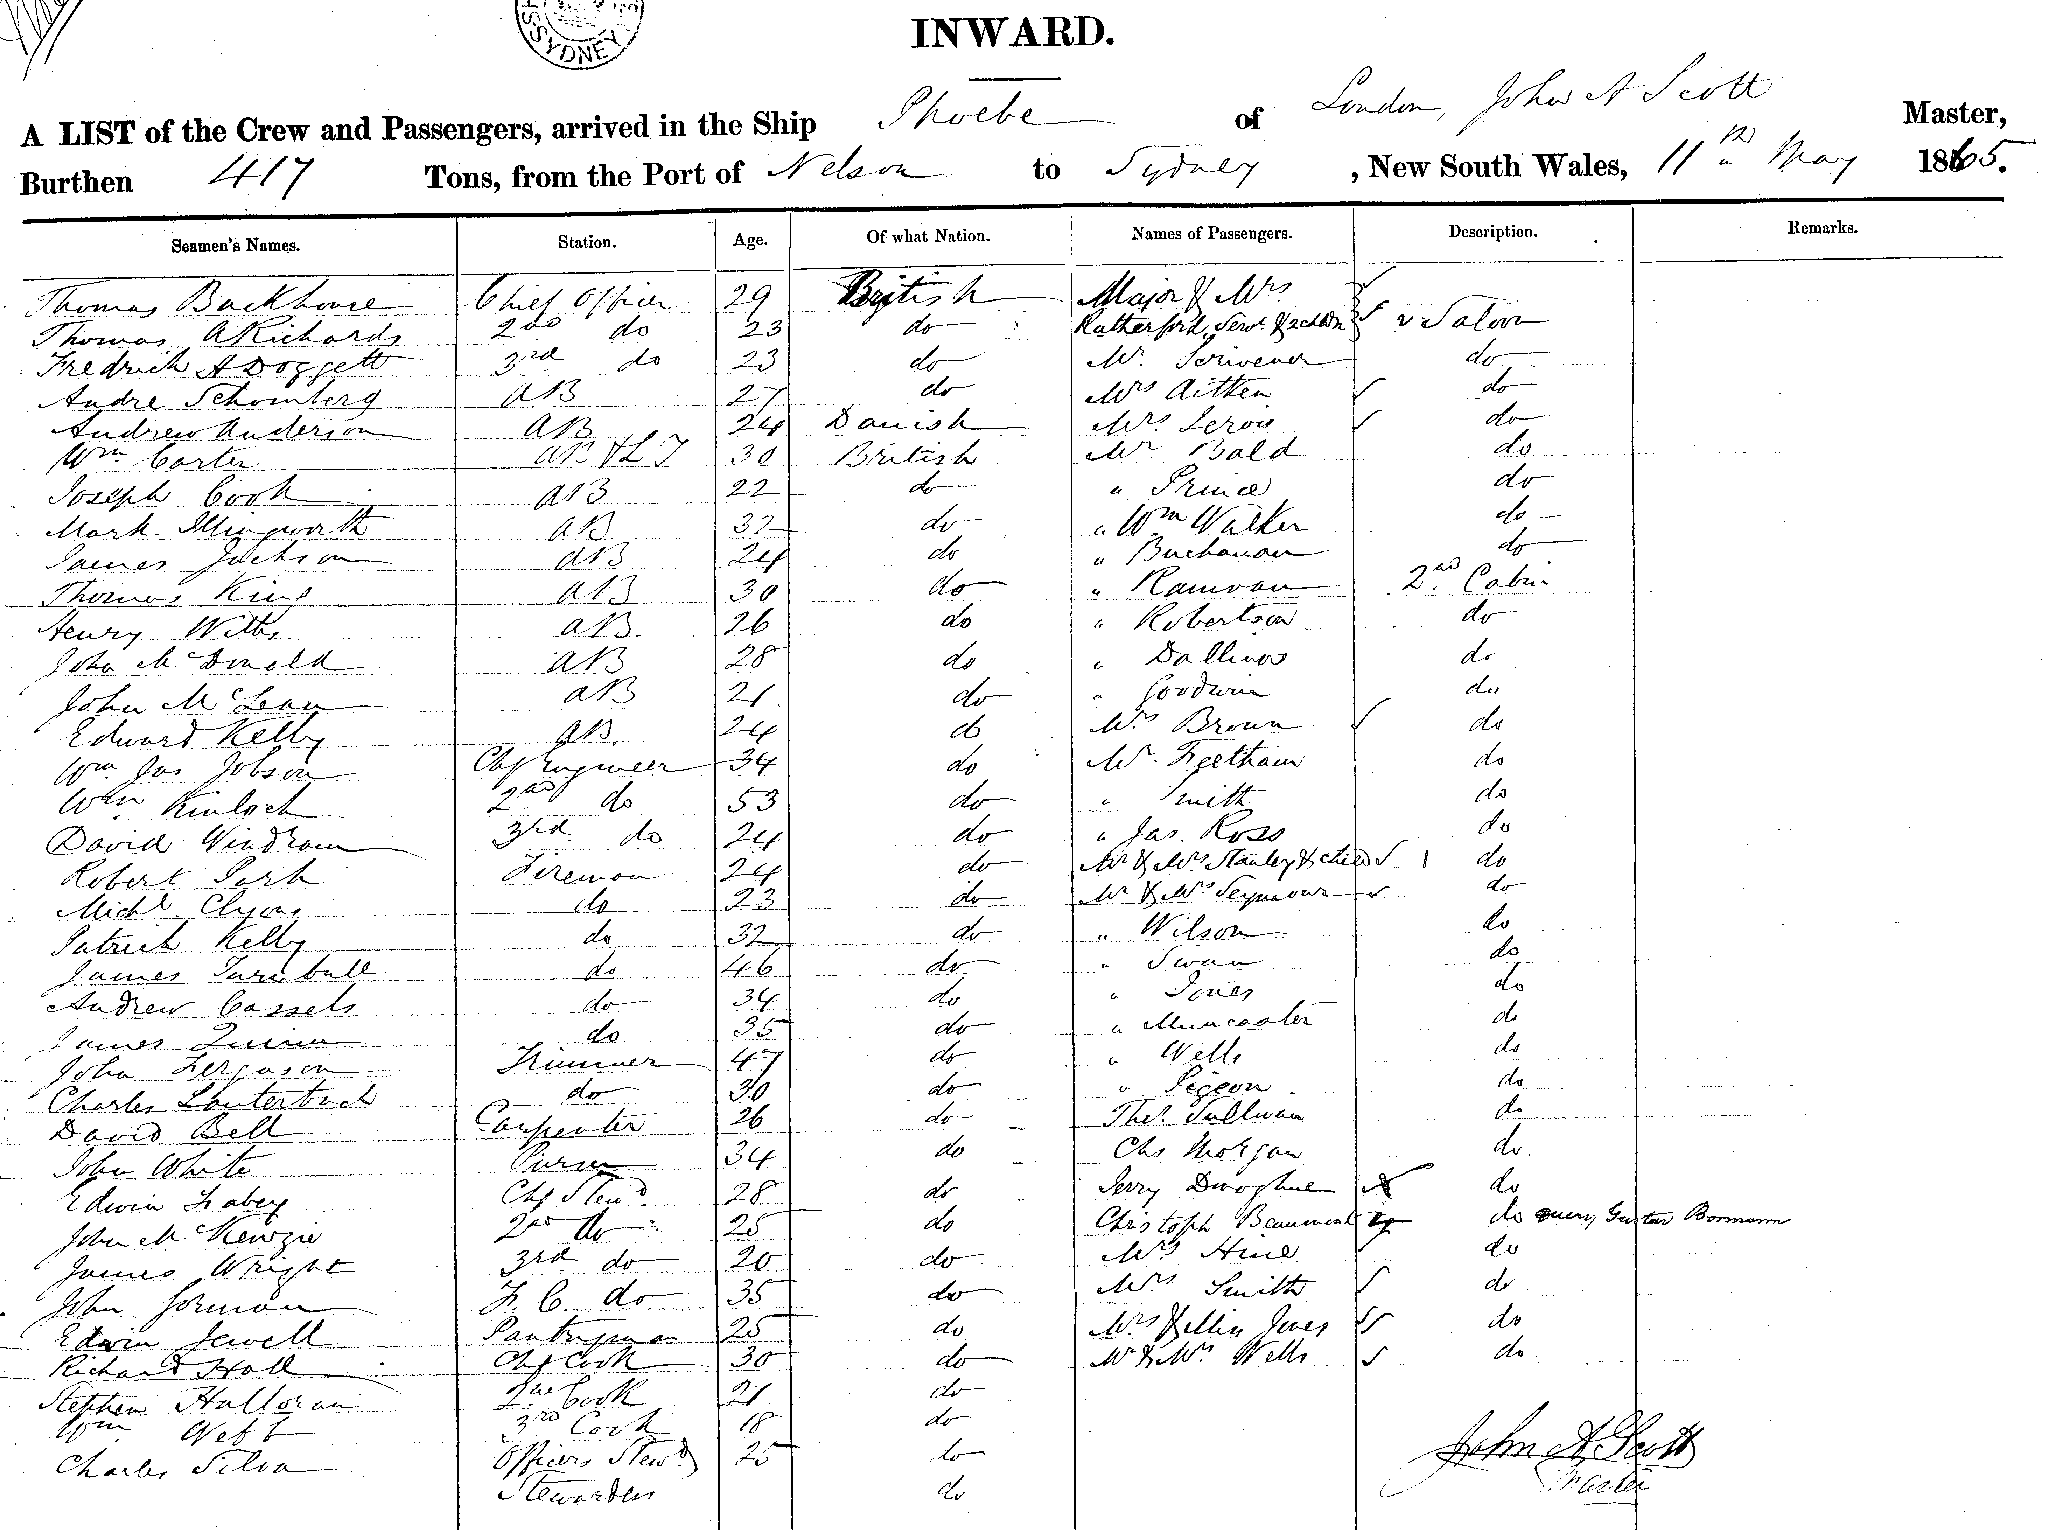 SYDNEY
INWARD.
A LIST of the Crew and Passengers, arrived in the Ship Phoebe of London, John A Scott Master,
Burthen 417 Tons, from the Port of Nelson to Sydney, New South Wales, 11th May 1865.
Seamen's Names. Station. Age. Of what Nation. Names of Passengers. Description. Remarks.
Thomas Backhouse Chief Officer 29 British Major & Mrs
Thomas A Richards 2nd do 23 do Rutherford, Servt & 2 chldn 2 Saloon
Fredrick A Doggett 3rd do 23 do Mr. Scrivener do
Andre Schomberg AB 27 do Mrs Aitken do
Andrew Anderson AB 24 Danish Mrs do
Wm Carter AB & L T 30 British Mr Bald do
Joseph Cook AB 22 do " Prince do
Mark Illingworth AB 32 do " Wm Walker do
James Jackson AB 24 do " Buchanan do
Thomas King AB 30 do " 2nd Cabin
Henry Wills AB 26 do " Robertson do
John McDonald AB 28 do " do
John McLean AB 21 do " Goodwin do
Edward Kelly AB 24 do Mrs Brown do
Wm Jas Jobson Chf Engineer 34 do Mr. Feetham do
Wm Kinloch 2nd do 53 do " Smith do
David Windram 3rd do 24 do " Jas. Ross do
Robert Park Fireman 24 do Mr & Mrs Stanley & child 1 do
Michl do 23 do Mr & Mrs Seymour do
Patrick Kelly do 32 do " Wilson do
James Turnbull do 46 do " Swan do
Andrew Cassels do 34 do " Jones do
James Quinn do 35 do " Muncaster do
John Ferguson Trimmer 47 do " Wells do
Charles Lauterbach do 30 do " Pigeon do
David Bell Carpenter 26 do Thos. Sullivan do
John White Purser 34 do Chs Morgan do
Edwin Chf Stewd 28 do Jerry Donoghue do
John McKenzie 2nd do 25 do Christoph Beaumont do query Gustav Bormann
James Wright 3rd do 20 do Mrs Hine do
John Gorman F. C. do 35 do Mrs Smith do
Edwin Jewell Pantryman 25 do Mrs & Miss Jones do
Richard Holl Chf Cook 30 do Mr & Mrs Wells do
Stephen Halloran 2nd Cook 21 do
Wm Webb 3rd Cook 18 do
Charles Silva Officers Stewd 25 do
Stewardess do
John A Scott
Master